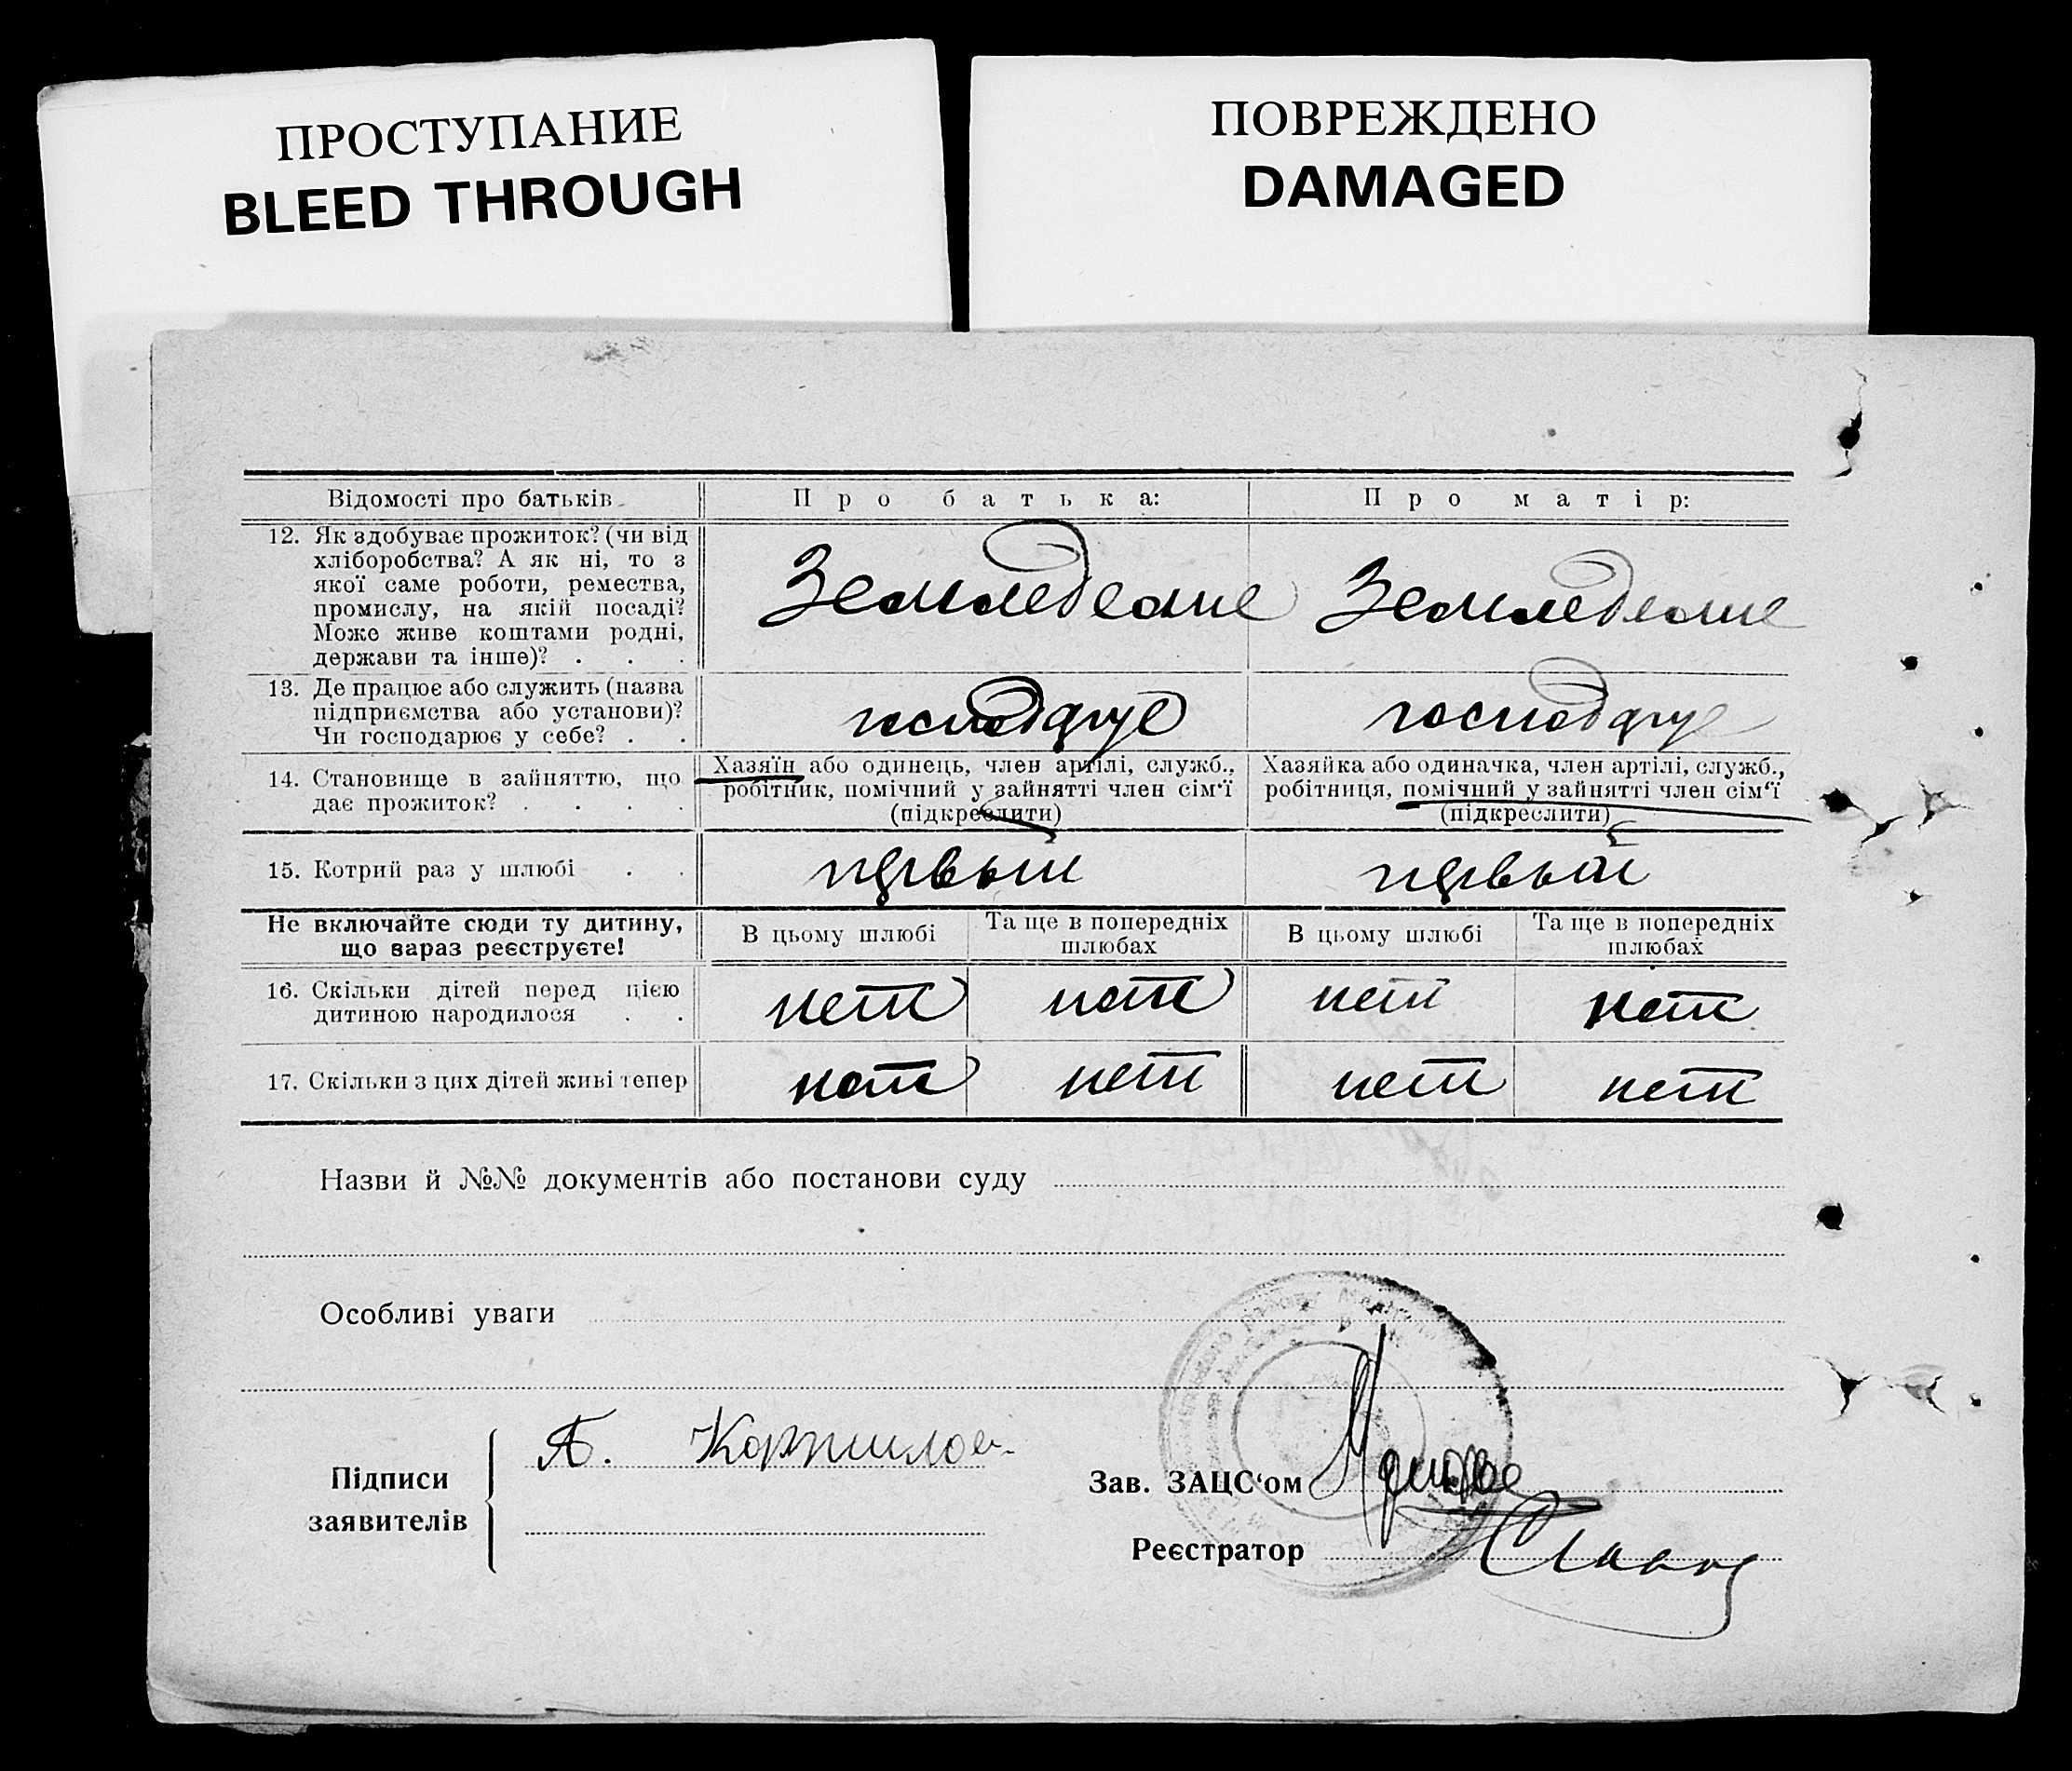 ПРОСТУПАНИЕ
BLEED THROUGH
ПОВРЕЖДЕНО
DAMAGED
Відомості про батьків
Про батька:
Про матір:
12. Як здобуває прожиток? (чи від
хліборобства? А як ні, то з
якої саме роботи, ремества,
промислу, на якій посаді?
Може живе коштами родні,
держави та інше)? . . .
Земледелие
Земледелие
13. Де працює або служить (назва
підприємства або установи)?
Чи господарює у себе? . .
господарує
господарує
14. Становище в зайняттю, що
дає прожиток? . . . .
Хазяїн або одинець, член артілі, служб.,
робітник, помічний у зайнятті член сім'ї
(підкреслити)
Хазяйка або одиначка, член артілі, служб.,
робітниця, помічний у зайнятті член сім'ї
(підкреслити)
15. Котрий раз у шлюбі . .
первый
первый
Не включайте сюди ту дитину,
що вараз реєструєте!
В цьому шлюбі
Та ще в попередніх
шлюбах
В цьому шлюбі
Та ще в попередніх
шлюбах
16. Скільки дітей перед цією
дитиною народилося . .
нет нет нет нет
17. Скільки з цих дітей живі тепер
нет нет нет нет
Назви й №№ документів або постанови суду
Особливі уваги
Підписи
заявителів
Зав. ЗАЦС'ом
Реєстратор